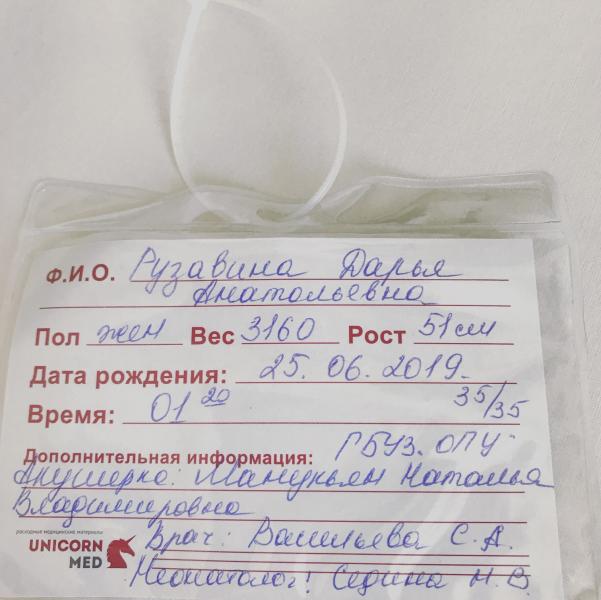 Ф.И.О. Рузавина Дарья
Анатольевна
Пол жен Вес 3160 Рост 51 см
Дата рождения: 25. 06. 2019.
Время: 01 20 35/35
Дополнительная информация: ГБУЗ. ОПЦ
Акушерка: Манукьян Наталья
Владимировна
расходные медицинские материалы
UNICORN
MED
Врач: Васильева С.А.
Неонатолог: Седина Н.В.